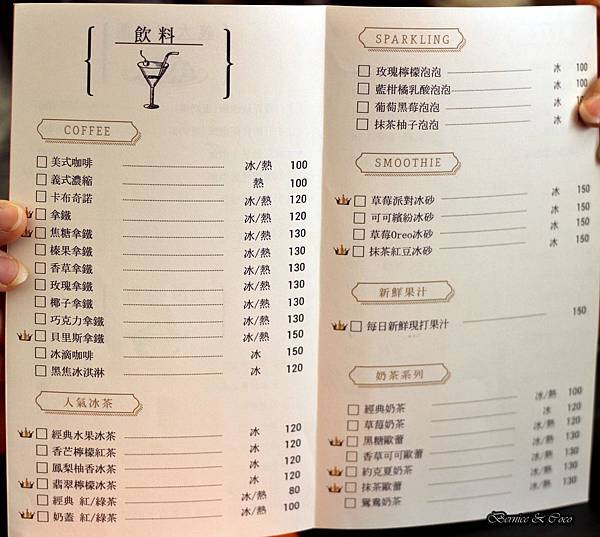 飲料
COFFEE
美式咖啡 冰/熱 100
義式濃縮 熱 100
卡布奇諾 冰/熱 120
拿鐵 冰/熱 120
焦糖拿鐵 冰/熱 130
榛果拿鐵 冰/熱 130
香草拿鐵 冰/熱 130
玫瑰拿鐵 冰/熱 130
椰子拿鐵 冰/熱 130
巧克力拿鐵 冰/熱 130
貝里斯拿鐵 冰/熱 150
冰滴咖啡 冰 150
黑焦冰淇淋 冰 120
人氣冰茶
經典水果冰茶 冰 120
香芒檸檬紅茶 冰 120
鳳梨柚香冰茶 冰 120
翡翠檸檬冰茶 冰 120
經典 紅/綠茶 冰/熱 80
奶蓋 紅/綠茶 冰/熱 100
SPARKLING
玫瑰檸檬泡泡 冰 100
藍柑橘乳酸泡泡 冰 100
葡萄黑莓泡泡 冰 100
抹茶柚子泡泡 冰 100
SMOOTHIE
草莓派對冰砂 冰 150
可可繽紛冰砂 冰 150
草莓Oreo冰砂 冰 150
抹茶紅豆冰砂 冰 150
新鮮果汁
每日新鮮現打果汁 150
奶茶系列
經典奶茶 冰/熱 100
草莓奶茶 冰 120
黑糖歐蕾 冰/熱 120
香草可可歐蕾 冰/熱 130
約克夏奶茶 冰/熱 130
抹茶歐蕾 冰/熱 130
鴛鴦奶茶 冰/熱 130
Bernice & Coco